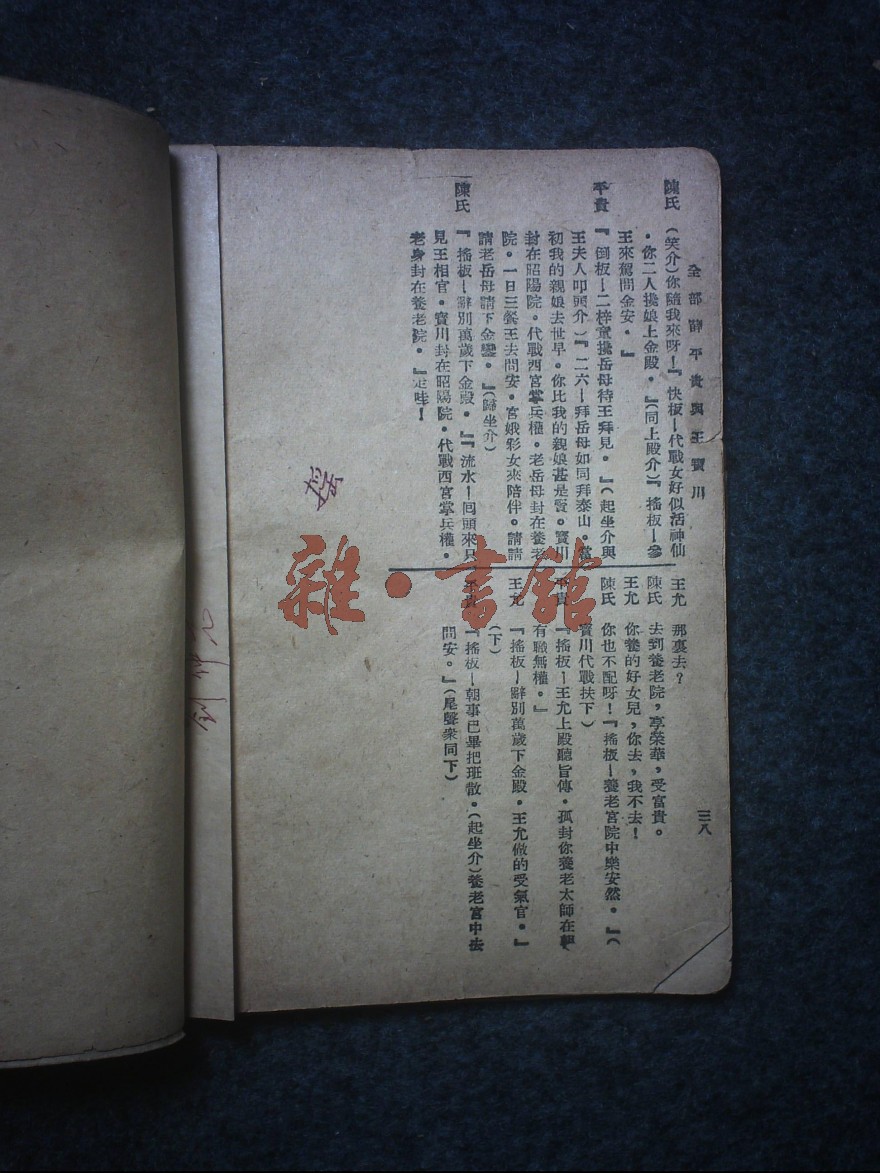 全部薛平貴與王寶川
三八
陳氏 (笑介)你隨我來呀!『快板—代戰女好似活神仙
•你二人攙娘上金殿•』(同上殿介)『搖板—參
王來駕問金安•』
平貴 『倒板—二梓童攙岳母待王拜見•』(起坐介與
王夫人叩頭介)『二六—拜岳母如同拜泰山•當
初我的親娘去世早•你比我的親娘甚是賢•寶川
封在昭陽院•代戰西宮掌兵權•老岳母封在養老
院•一日三餐王去問安•宮娥彩女來陪伴•請請
請老岳母請下金鑾•』(歸坐介)
陳氏 『搖板—辭別萬歲下金殿•』『流水—囘頭來只
見王相官•寶川封在昭陽院•代戰西宮掌兵權•
老身封在養老院•』走哇!
王允 那裏去?
陳氏 去到養老院,享榮華,受富貴。
王允 你養的好女兒,你去,我不去!
陳氏 你也不配呀!『搖板—養老宮院中樂安然•』(
寶川代戰扶下)
平貴 『搖板—王允上殿聽旨傳•孤封你養老太師在朝
有職無權•』
王允 『搖板—辭別萬歲下金殿•王允做的受氣官•』
(下)
平貴 『搖板—朝事已畢把班散•(起坐介)養老宮中去
問安•』(尾聲衆同下)
雜•書館